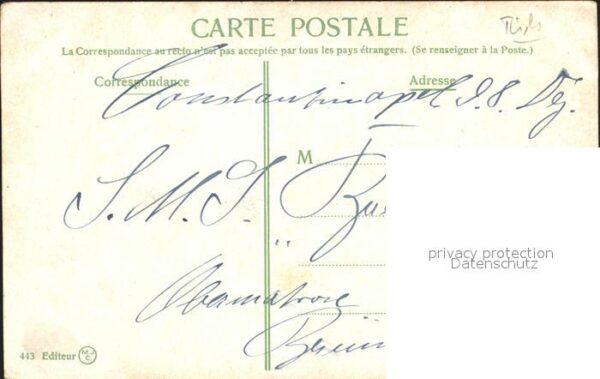 CARTE POSTALE
La Correspondance au recto n'est pas acceptée par tous les pays étrangers. (Se renseigner à la Poste.)
Correspondance Adresse
Constantinopel 9. 8. Dez.
M
S. M. S.
"
privacy protection
Datenschutz
Obermatrose
443 Editeur M.J.C.